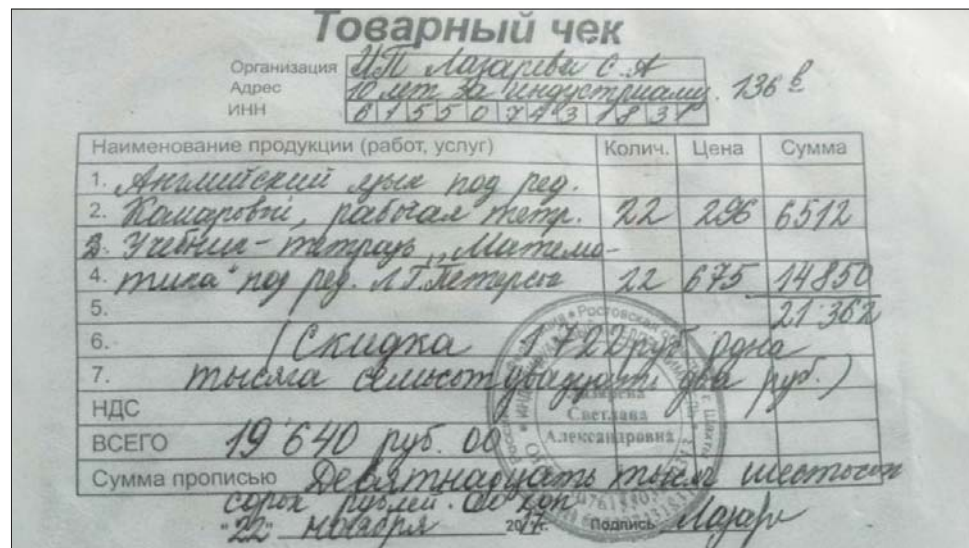 Товарный чек
Организация ИП Лазарева С. А
Адрес 10 лет за индустриализ. 136 в
ИНН 615507431831
Наименование продукции (работ, услуг) Колич. Цена Сумма
1. Английский язык под ред.
2. Комаровой, рабочая тетр. 22 296 6512
3. Учебник-тетрадь „Матема-
4. тика" под ред. Л.Г. Петерсон 22 675 14850
5. 21 362
6. (Скидка 1722 руб одна
7. тысяча семьсот двадцать два руб.)
НДС
ВСЕГО 19 640 руб. 00
Сумма прописью Девятнадцать тысяч шестьсот
сорок рублей. 00 коп
"22" ноября 20 г. Подпись Лазаре
Лазарева
Светлана
Александровна